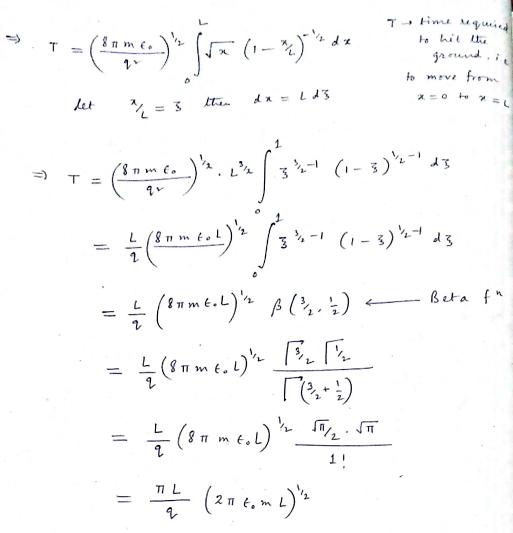 ⇒ T = (8πmε₀/q²)^1/2 ∫₀^L √x (1 - x/L)^-1/2 dx
T → time required
to hit the
ground. i.e
to move from
x=0 to x=L
let x/L = ʒ then dx = L dʒ
⇒ T = (8πmε₀/q²)^1/2 . L^3/2 ∫₀^1 ʒ^(3/2-1) (1-ʒ)^(1/2-1) dʒ
= L/q (8πmε₀L)^1/2 ∫₀^1 ʒ^(3/2-1) (1-ʒ)^(1/2-1) dʒ
= L/q (8πmε₀L)^1/2 β(3/2, 1/2) ← Beta fⁿ
= L/q (8πmε₀L)^1/2 Γ3/2 Γ1/2 / Γ(3/2+1/2)
= L/q (8πmε₀L)^1/2 √π/2 . √π / 1!
= πL/q (2πε₀mL)^1/2